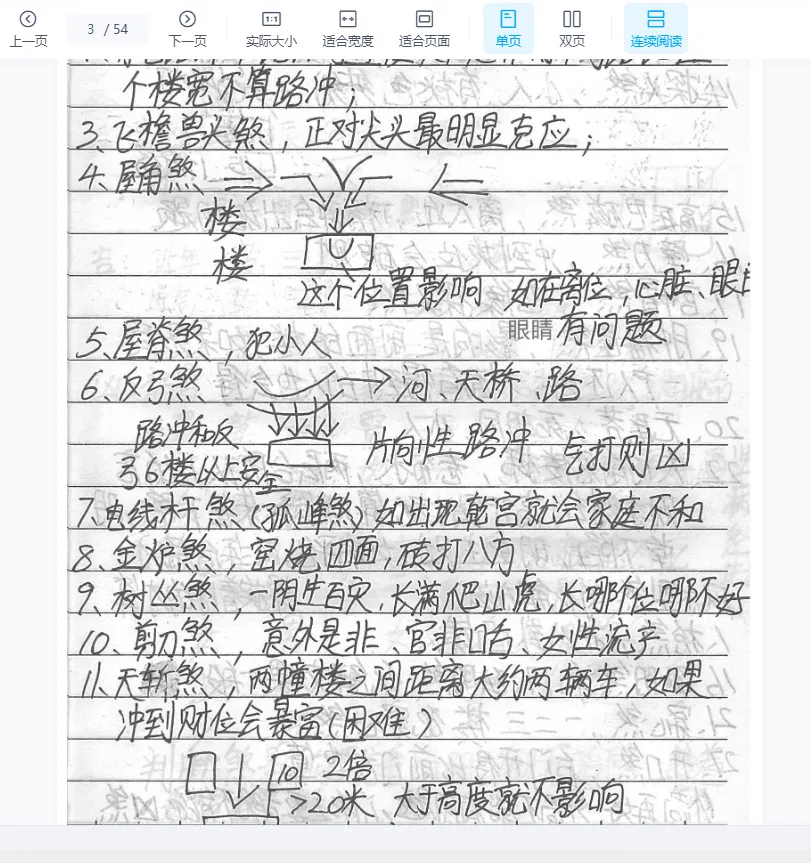 上一页
3 / 54
下一页
实际大小
适合宽度
适合页面
单页
双页
连续阅读
个楼宽不算路冲；
3、飞檐兽头煞，正对尖头最明显克应；
4、屋角煞
楼
楼
这个位置影响 如在离位，心脏、眼
眼睛 有问题
5、屋脊煞，犯小人
6、反弓煞 河、天桥、路
路冲和反 片向性路冲 乞打则凶
弓6楼以上安全
7、电线杆煞（孤峰煞）如出现乾宫就会家庭不和
8、金炉煞，窑烧四面，砖打八方
9、树丛煞，一阴生百灾，长满爬山虎，长哪个位哪不好
10、剪刀煞，意外是非、官非口舌、女性流产
11、天斩煞，两幢楼之间距离大约两辆车，如果
冲到财位会暴富（困难）
10 2倍
>20米 大于高度就不影响